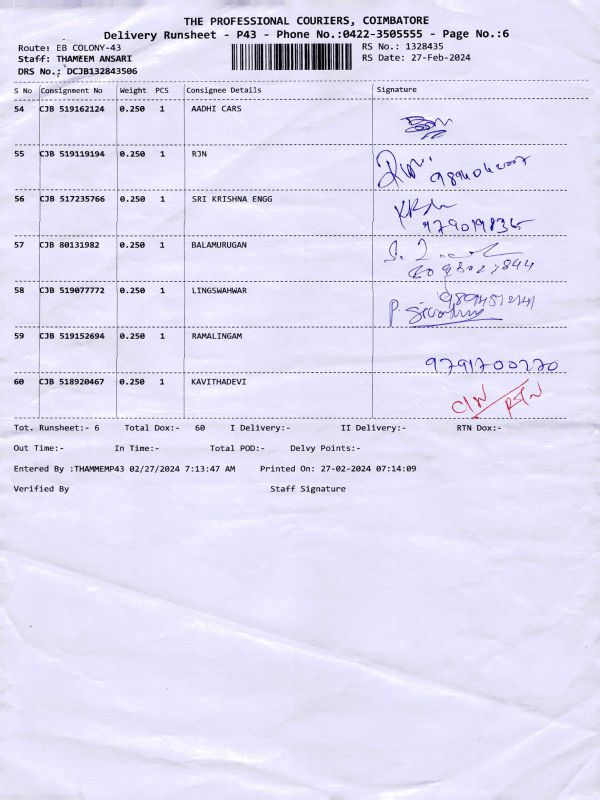 THE PROFESSIONAL COURIERS, COIMBATORE
Delivery Runsheet - P43 - Phone No.:0422-3505555 - Page No.:6
Route: EB COLONY-43 RS No.: 1328435
Staff: THAMEEM ANSARI RS Date: 27-Feb-2024
DRS No.: DCJB132843506
S No Consignment No Weight PCS Consignee Details Signature
54 CJB 519162124 0.250 1 AADHI CARS
55 CJB 519119194 0.250 1 RJN
56 CJB 517235766 0.250 1 SRI KRISHNA ENGG
57 CJB 80131982 0.250 1 BALAMURUGAN
58 CJB 519077772 0.250 1 LINGSWAHWAR
59 CJB 519152694 0.250 1 RAMALINGAM
9791700270
60 CJB 518920467 0.250 1 KAVITHADEVI
Tot. Runsheet:- 6 Total Dox:- 60 I Delivery:- II Delivery:- RTN Dox:-
Out Time:- In Time:- Total POD:- Delvy Points:-
Entered By :THAMMEMP43 02/27/2024 7:13:47 AM Printed On: 27-02-2024 07:14:09
Verified By Staff Signature